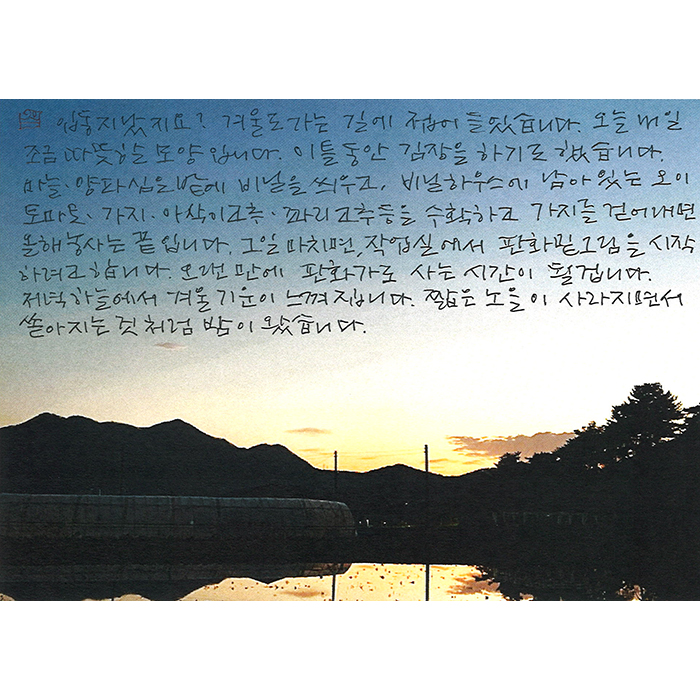 입동지났지요? 겨울로 가는 길에 접어들었습니다. 오늘 내일
조금 따뜻할 모양입니다. 이틀동안 김장을 하기로 했습니다.
마늘·양파심은밭에 비닐을 씌우고, 비닐하우스에 남아있는 오이
토마토·가지·아삭이고추·꽈리고추등을 수확하고 가지를 걷어내면
올해농사는 끝입니다. 그일 마치면, 작업실에서 판화밑그림을 시작
하려고 합니다. 오랜만에 판화가로 사는 시간이 될겁니다.
저녁하늘에서 겨울기운이 느껴집니다. 짧은 노을이 사라지면서
쏟아지는 것처럼 밤이 왔습니다.